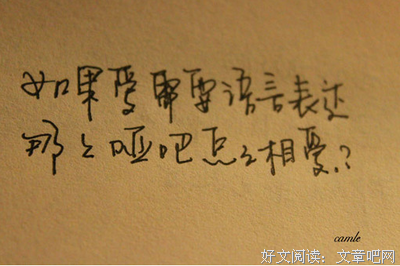 如果爱需要语言表达
那么哑吧怎么相爱.?
camle
好文阅读：文章吧网